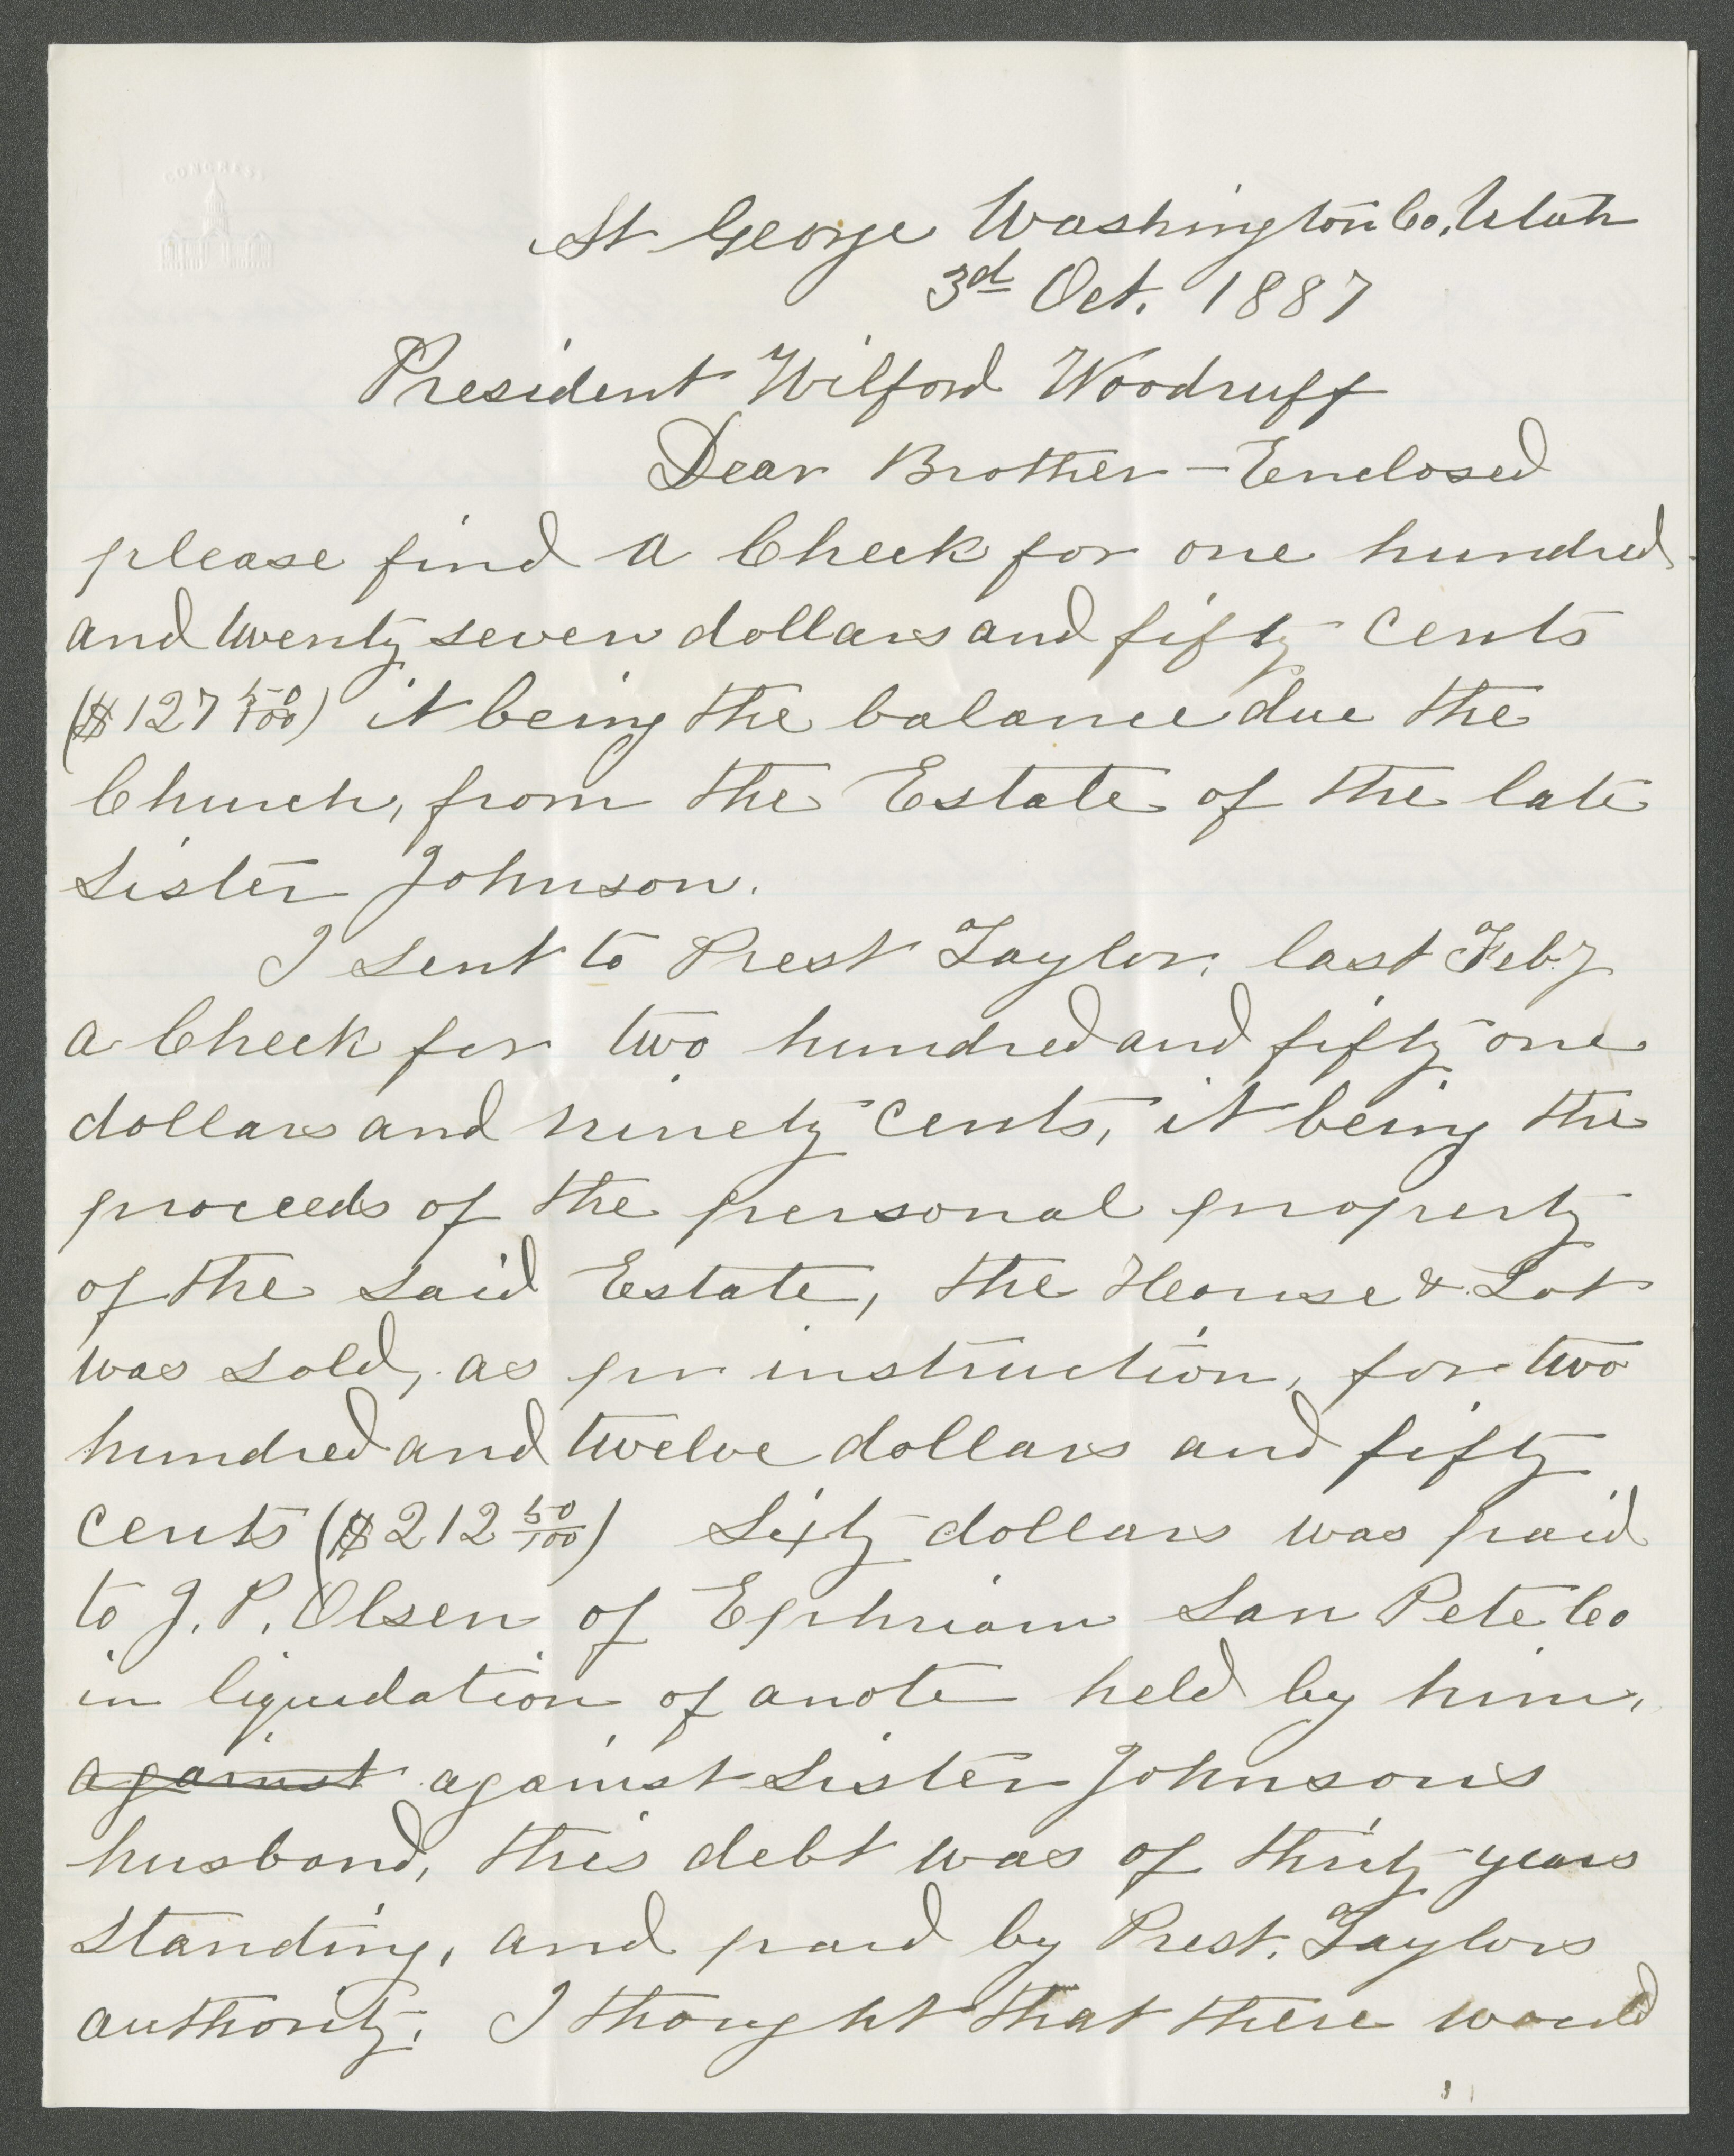 CONGRESS
St George Washington Co, Utah
3d Oct. 1887
President Wilford Woodruff
Dear Brother - Enclosed
please find a Check for one hundred
and twenty seven dollars and fifty cents
($127 50/100) it being the balance due the
Church, from the Estate of the late
Sister Johnson.
I sent to Prest Taylor, last Feby
a Check for two hundred and fifty one
dollars and ninety cents, it being the
proceeds of the personal property
of the said Estate, the House & Lot
was sold, as pr instruction, for two
hundred and twelve dollars and fifty
cents ($212 50/100) Sixty dollars was paid
to J. P. Olsen of Ephriam San Pete Co
in liquidation of a note held by him,
against against Sister Johnsons
husband, this debt was of thirty years
standing, and paid by Prest. Taylors
authority. I thought that there would